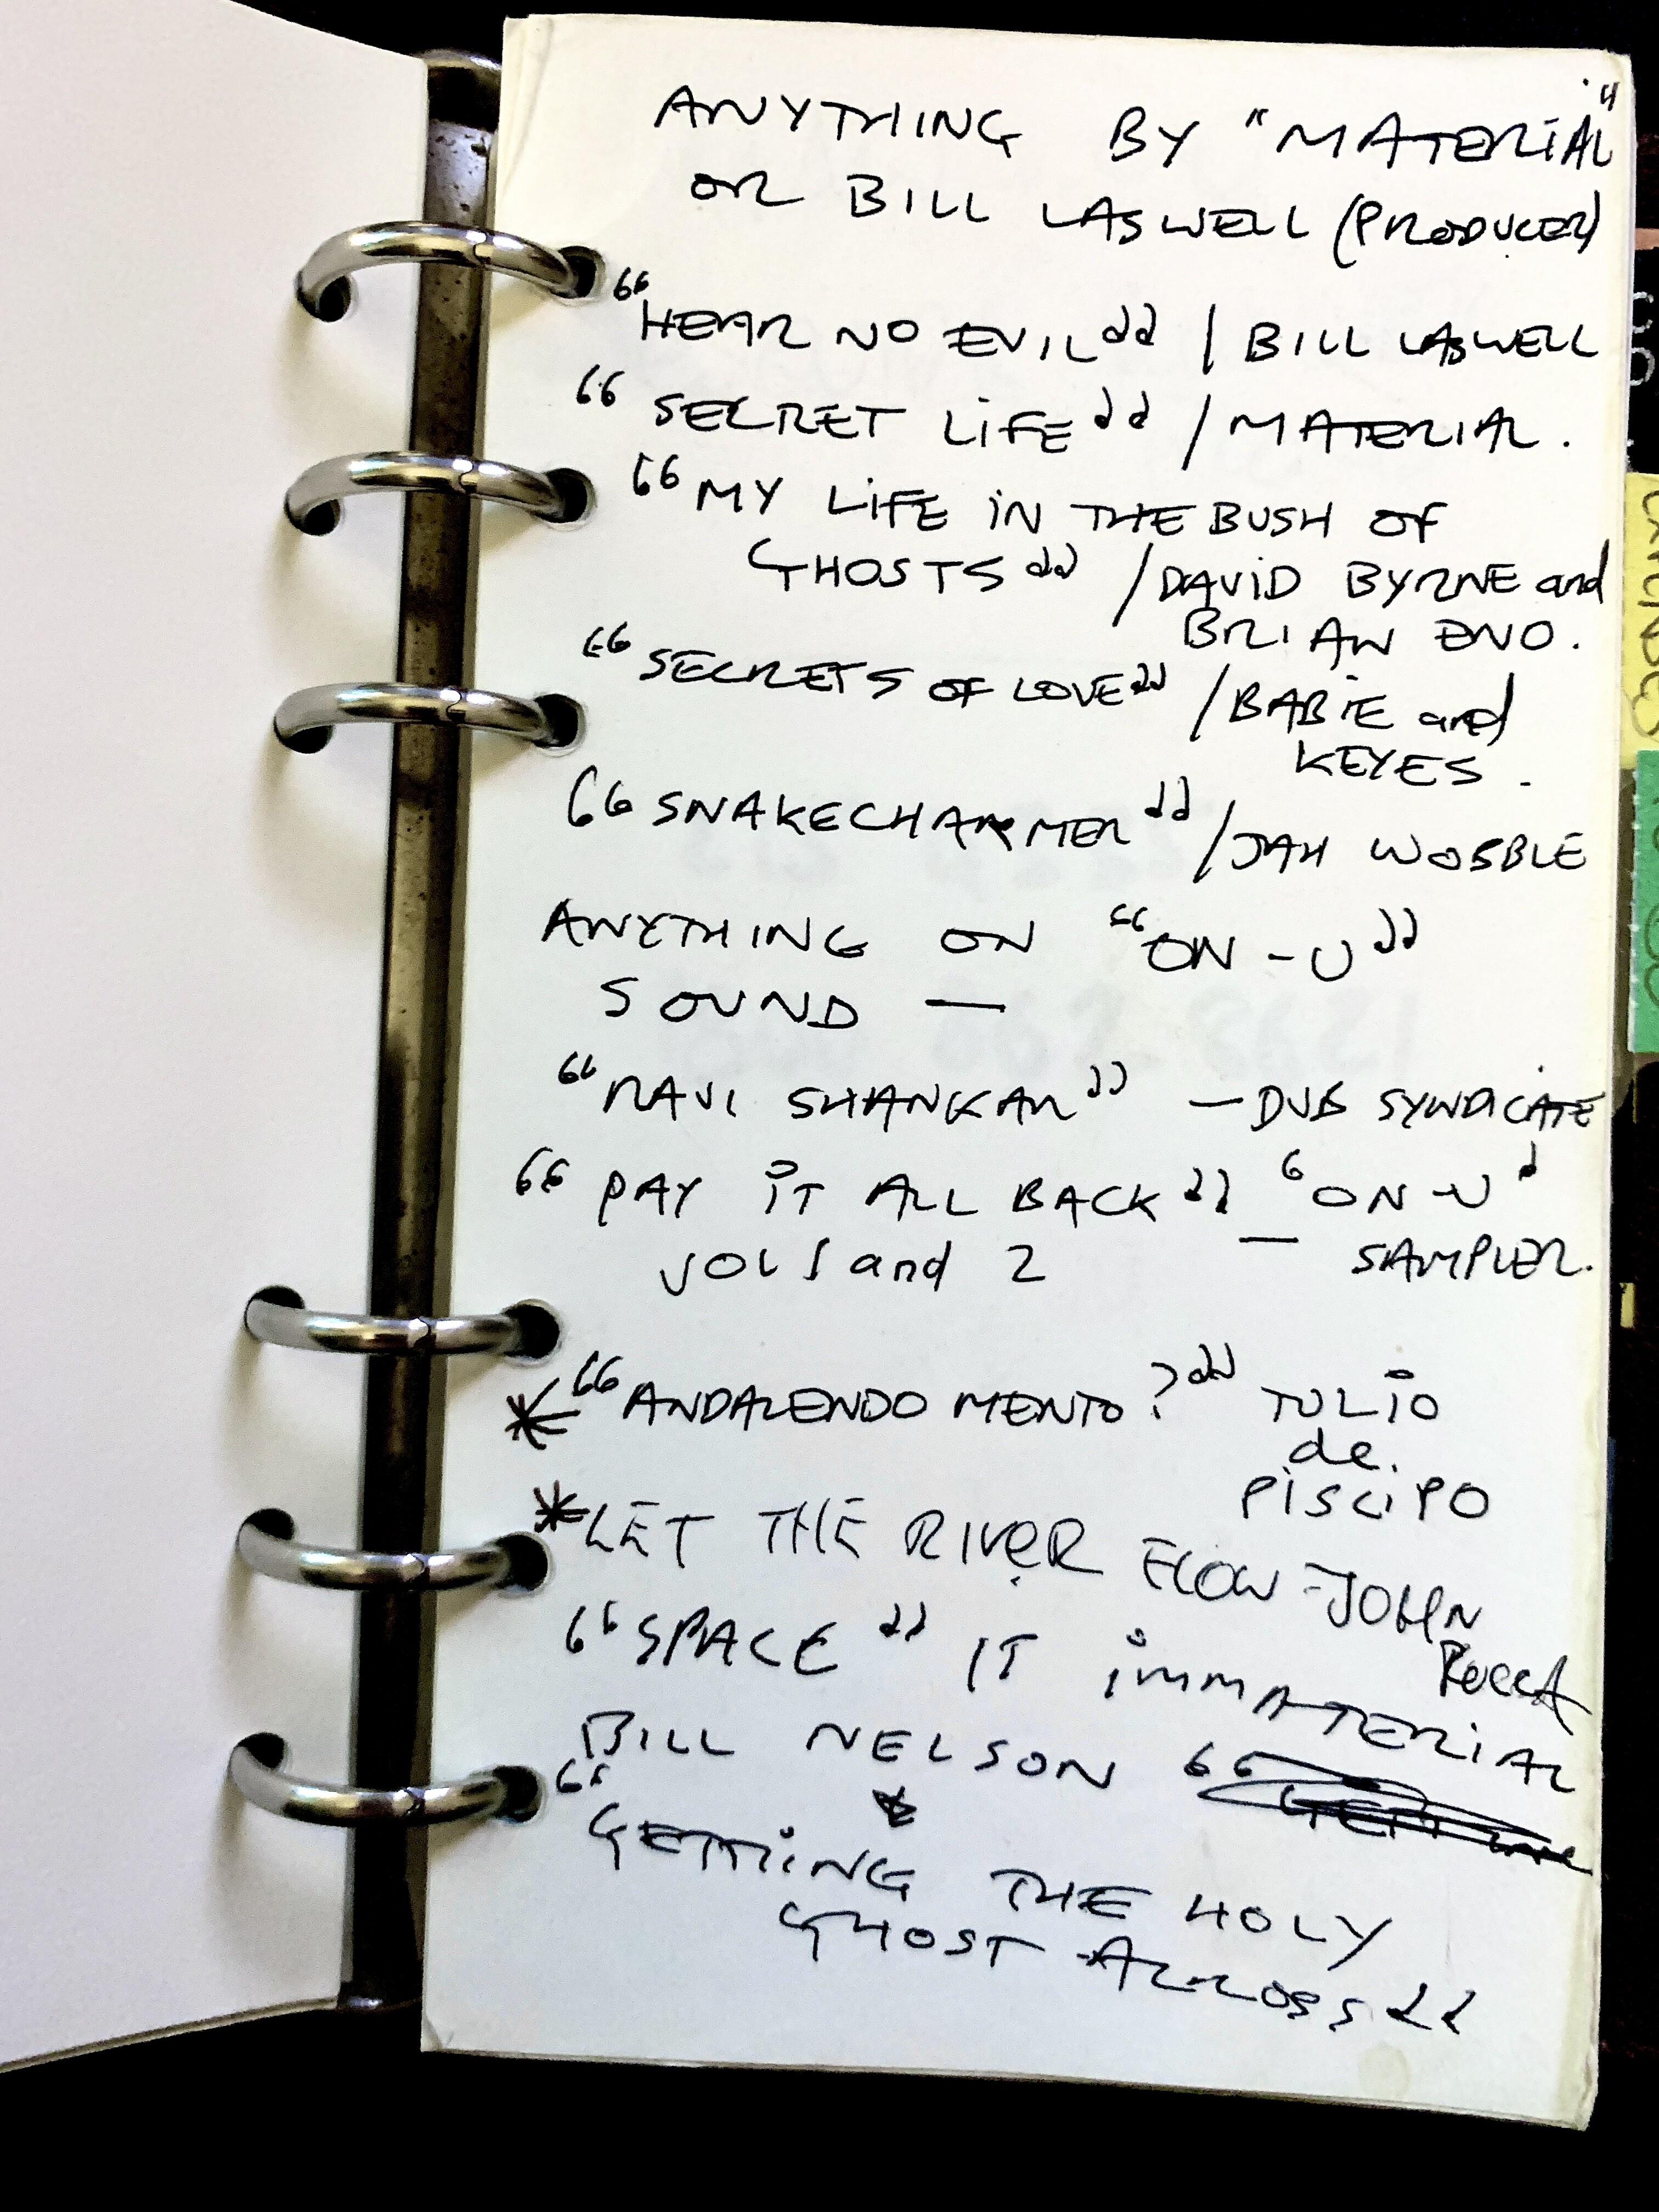 ANYTHING BY "MATERIAL"
OR BILL LASWELL (PRODUCER)
"HEAR NO EVIL" / BILL LASWELL
"SECRET LIFE" / MATERIAL.
"MY LIFE IN THE BUSH OF
GHOSTS" / DAVID BYRNE and
BRIAN ENO.
"SECRETS OF LOVE" / BABIE and
KEYES.
"SNAKECHARMER" / JAH WOBBLE
ANYTHING ON "ON-U"
SOUND —
"RAVI SHANKAR" — DUB SYNDICATE
"PAY IT ALL BACK" 'ON-U'
VOLS 1 and 2 — SAMPLER.
* "ANDALENDO MENTO?" TULIO
de
PISCIPO
* LET THE RIVER FLOW - JOHN
ROCCA
"SPACE" IT IMMATERIAL
BILL NELSON "
"GETTING THE HOLY
GHOST ACROSS"